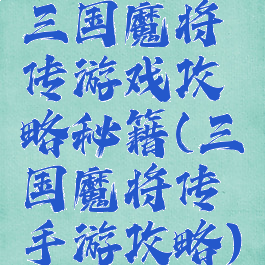 三国魔将
传游戏攻
略秘籍(三
国魔将传
手游攻略)